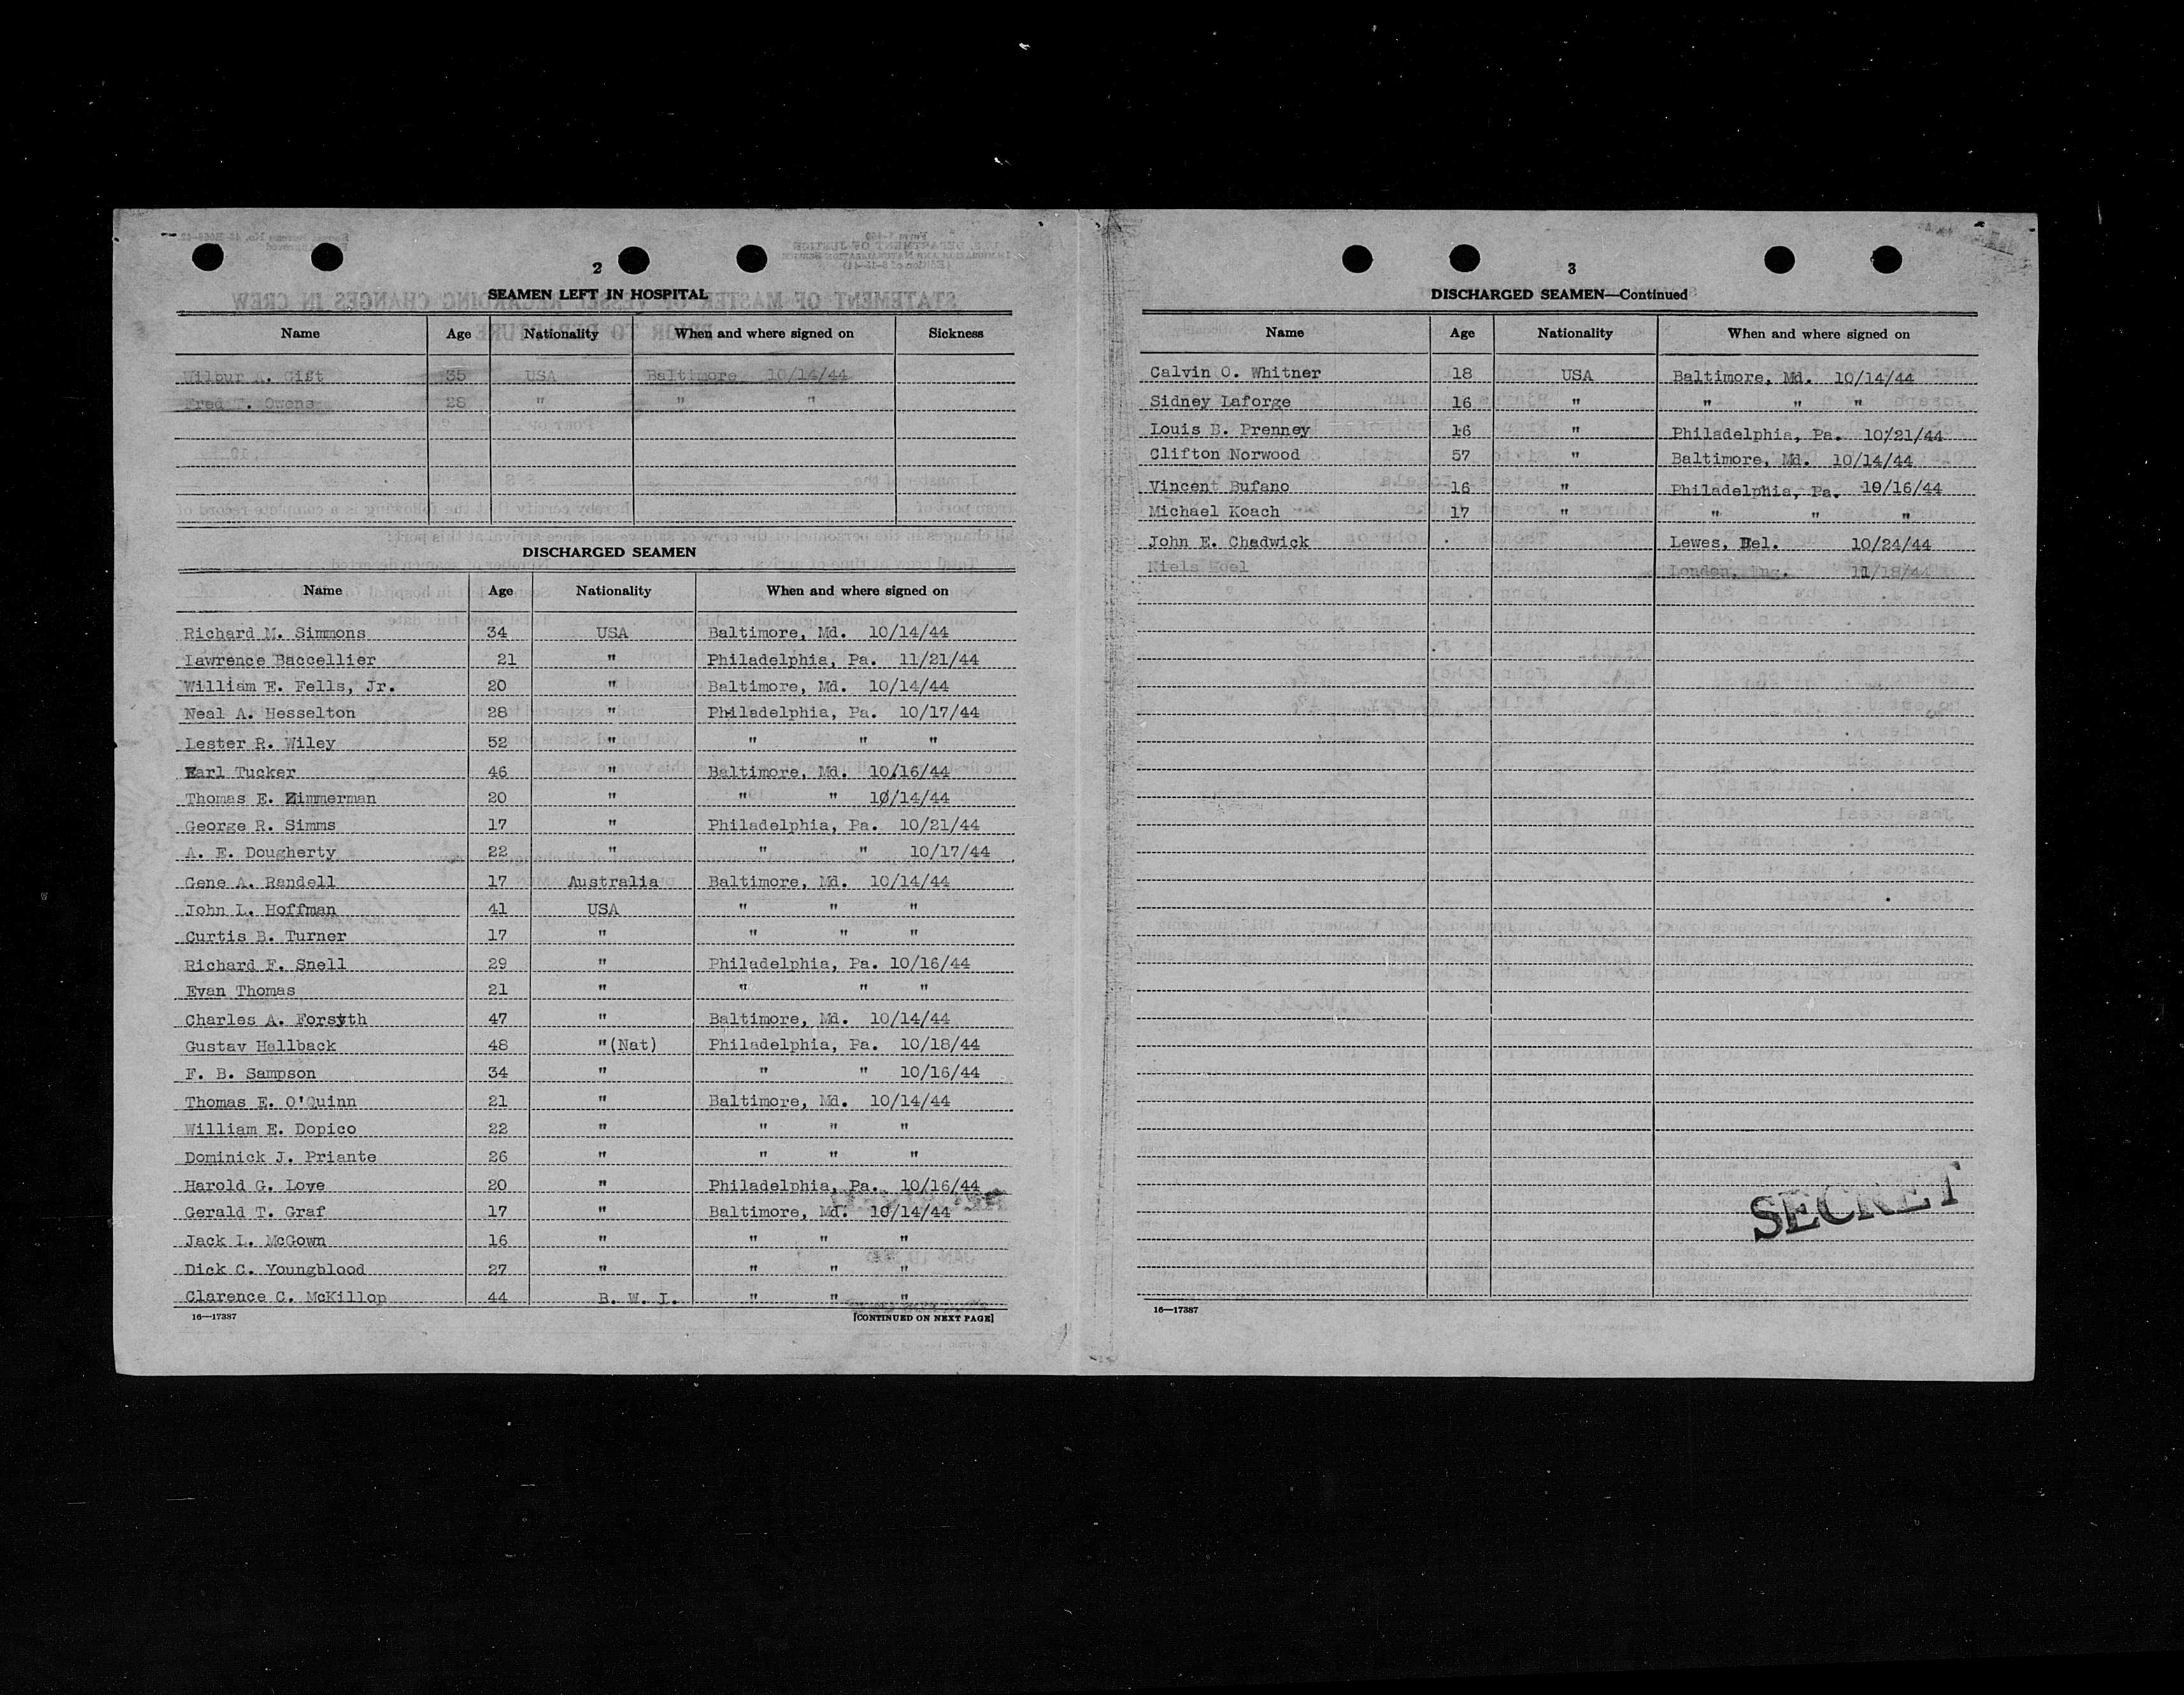 2
SEAMEN LEFT IN HOSPITAL
Name Age Nationality When and where signed on Sickness
Wilbur A. Gift 35 USA Baltimore 10/14/44
Fred T. Owens 28 " " "
DISCHARGED SEAMEN
Name Age Nationality When and where signed on
Richard M. Simmons 34 USA Baltimore, Md. 10/14/44
Lawrence Baccellier 21 " Philadelphia, Pa. 11/21/44
William E. Fells, Jr. 20 " Baltimore, Md. 10/14/44
Neal A. Hesselton 28 " Philadelphia, Pa. 10/17/44
Lester R. Wiley 52 " " " "
Earl Tucker 46 " Baltimore, Md. 10/16/44
Thomas E. Zimmerman 20 " " " 10/14/44
George R. Simms 17 " Philadelphia, Pa. 10/21/44
A. E. Dougherty 22 " " " 10/17/44
Gene A. Randell 17 Australia Baltimore, Md. 10/14/44
John L. Hoffman 41 USA " " "
Curtis B. Turner 17 " " " "
Richard F. Snell 29 " Philadelphia, Pa. 10/16/44
Evan Thomas 21 " " " "
Charles A. Forsyth 47 " Baltimore, Md. 10/14/44
Gustav Hallback 48 "(Nat) Philadelphia, Pa. 10/18/44
F. B. Sampson 34 " " " 10/16/44
Thomas E. O'Quinn 21 " Baltimore, Md. 10/14/44
William E. Dopico 22 " " " "
Dominick J. Priante 26 " " " "
Harold G. Love 20 " Philadelphia, Pa. 10/16/44
Gerald T. Graf 17 " Baltimore, Md. 10/14/44
Jack L. McGown 16 " " " "
Dick C. Youngblood 27 " " " "
Clarence C. McKillop 44 B. W. I. " " "
16—17387 [CONTINUED ON NEXT PAGE]
3
DISCHARGED SEAMEN—Continued
Name Age Nationality When and where signed on
Calvin O. Whitner 18 USA Baltimore, Md. 10/14/44
Sidney Laforge 16 " " " "
Louis B. Prenney 16 " Philadelphia, Pa. 10/21/44
Clifton Norwood 57 " Baltimore, Md. 10/14/44
Vincent Bufano 16 " Philadelphia, Pa. 10/16/44
Michael Koach 17 " " " "
John E. Chadwick Lewes, Del. 10/24/44
Niels London, Eng. 11/18/44
SECRET
16—17387